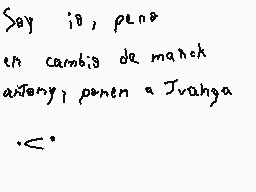 Soy io, pero
en cambio de manck
antony, ponen a Jvanga
.<.